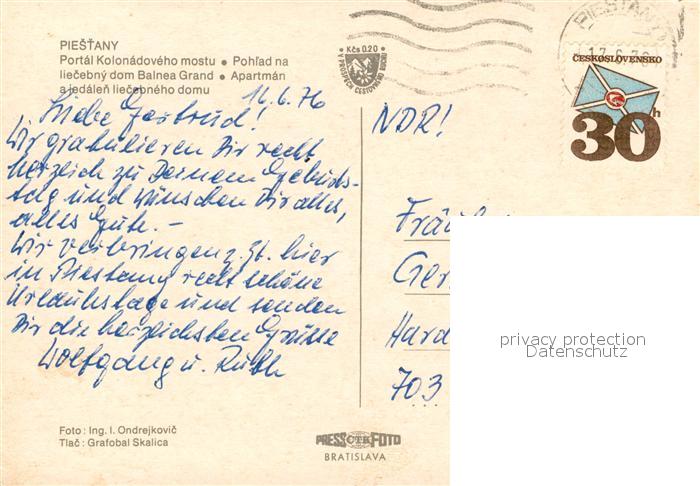 PIEŠŤANY
Portál Kolonádového mostu • Pohľad na
liečebný dom Balnea Grand • Apartmán
a jedáleň liečebného domu
Kčs 0.20
V PROSPECH CESTOVNÉHO RUCHU
PIEŠŤANY
17.6.76
ČESKOSLOVENSKO
30h
16.6.76
Liebe Gertrud!
Wir gratulieren Dir recht
herzlich zu Deinem Geburts-
tag und wünschen Dir alles,
alles Gute. –
Wir verbringen z. Zt. hier
in Piestany recht schöne
Urlaubstage und senden
Dir die herzlichsten Grüsse
Wolfgang u. Ruth
NDR!
Ger
Hard
703
privacy protection
Datenschutz
Foto: Ing. I. Ondrejkovič
Tlač: Grafobal Skalica
PRESSČTKFOTO
BRATISLAVA